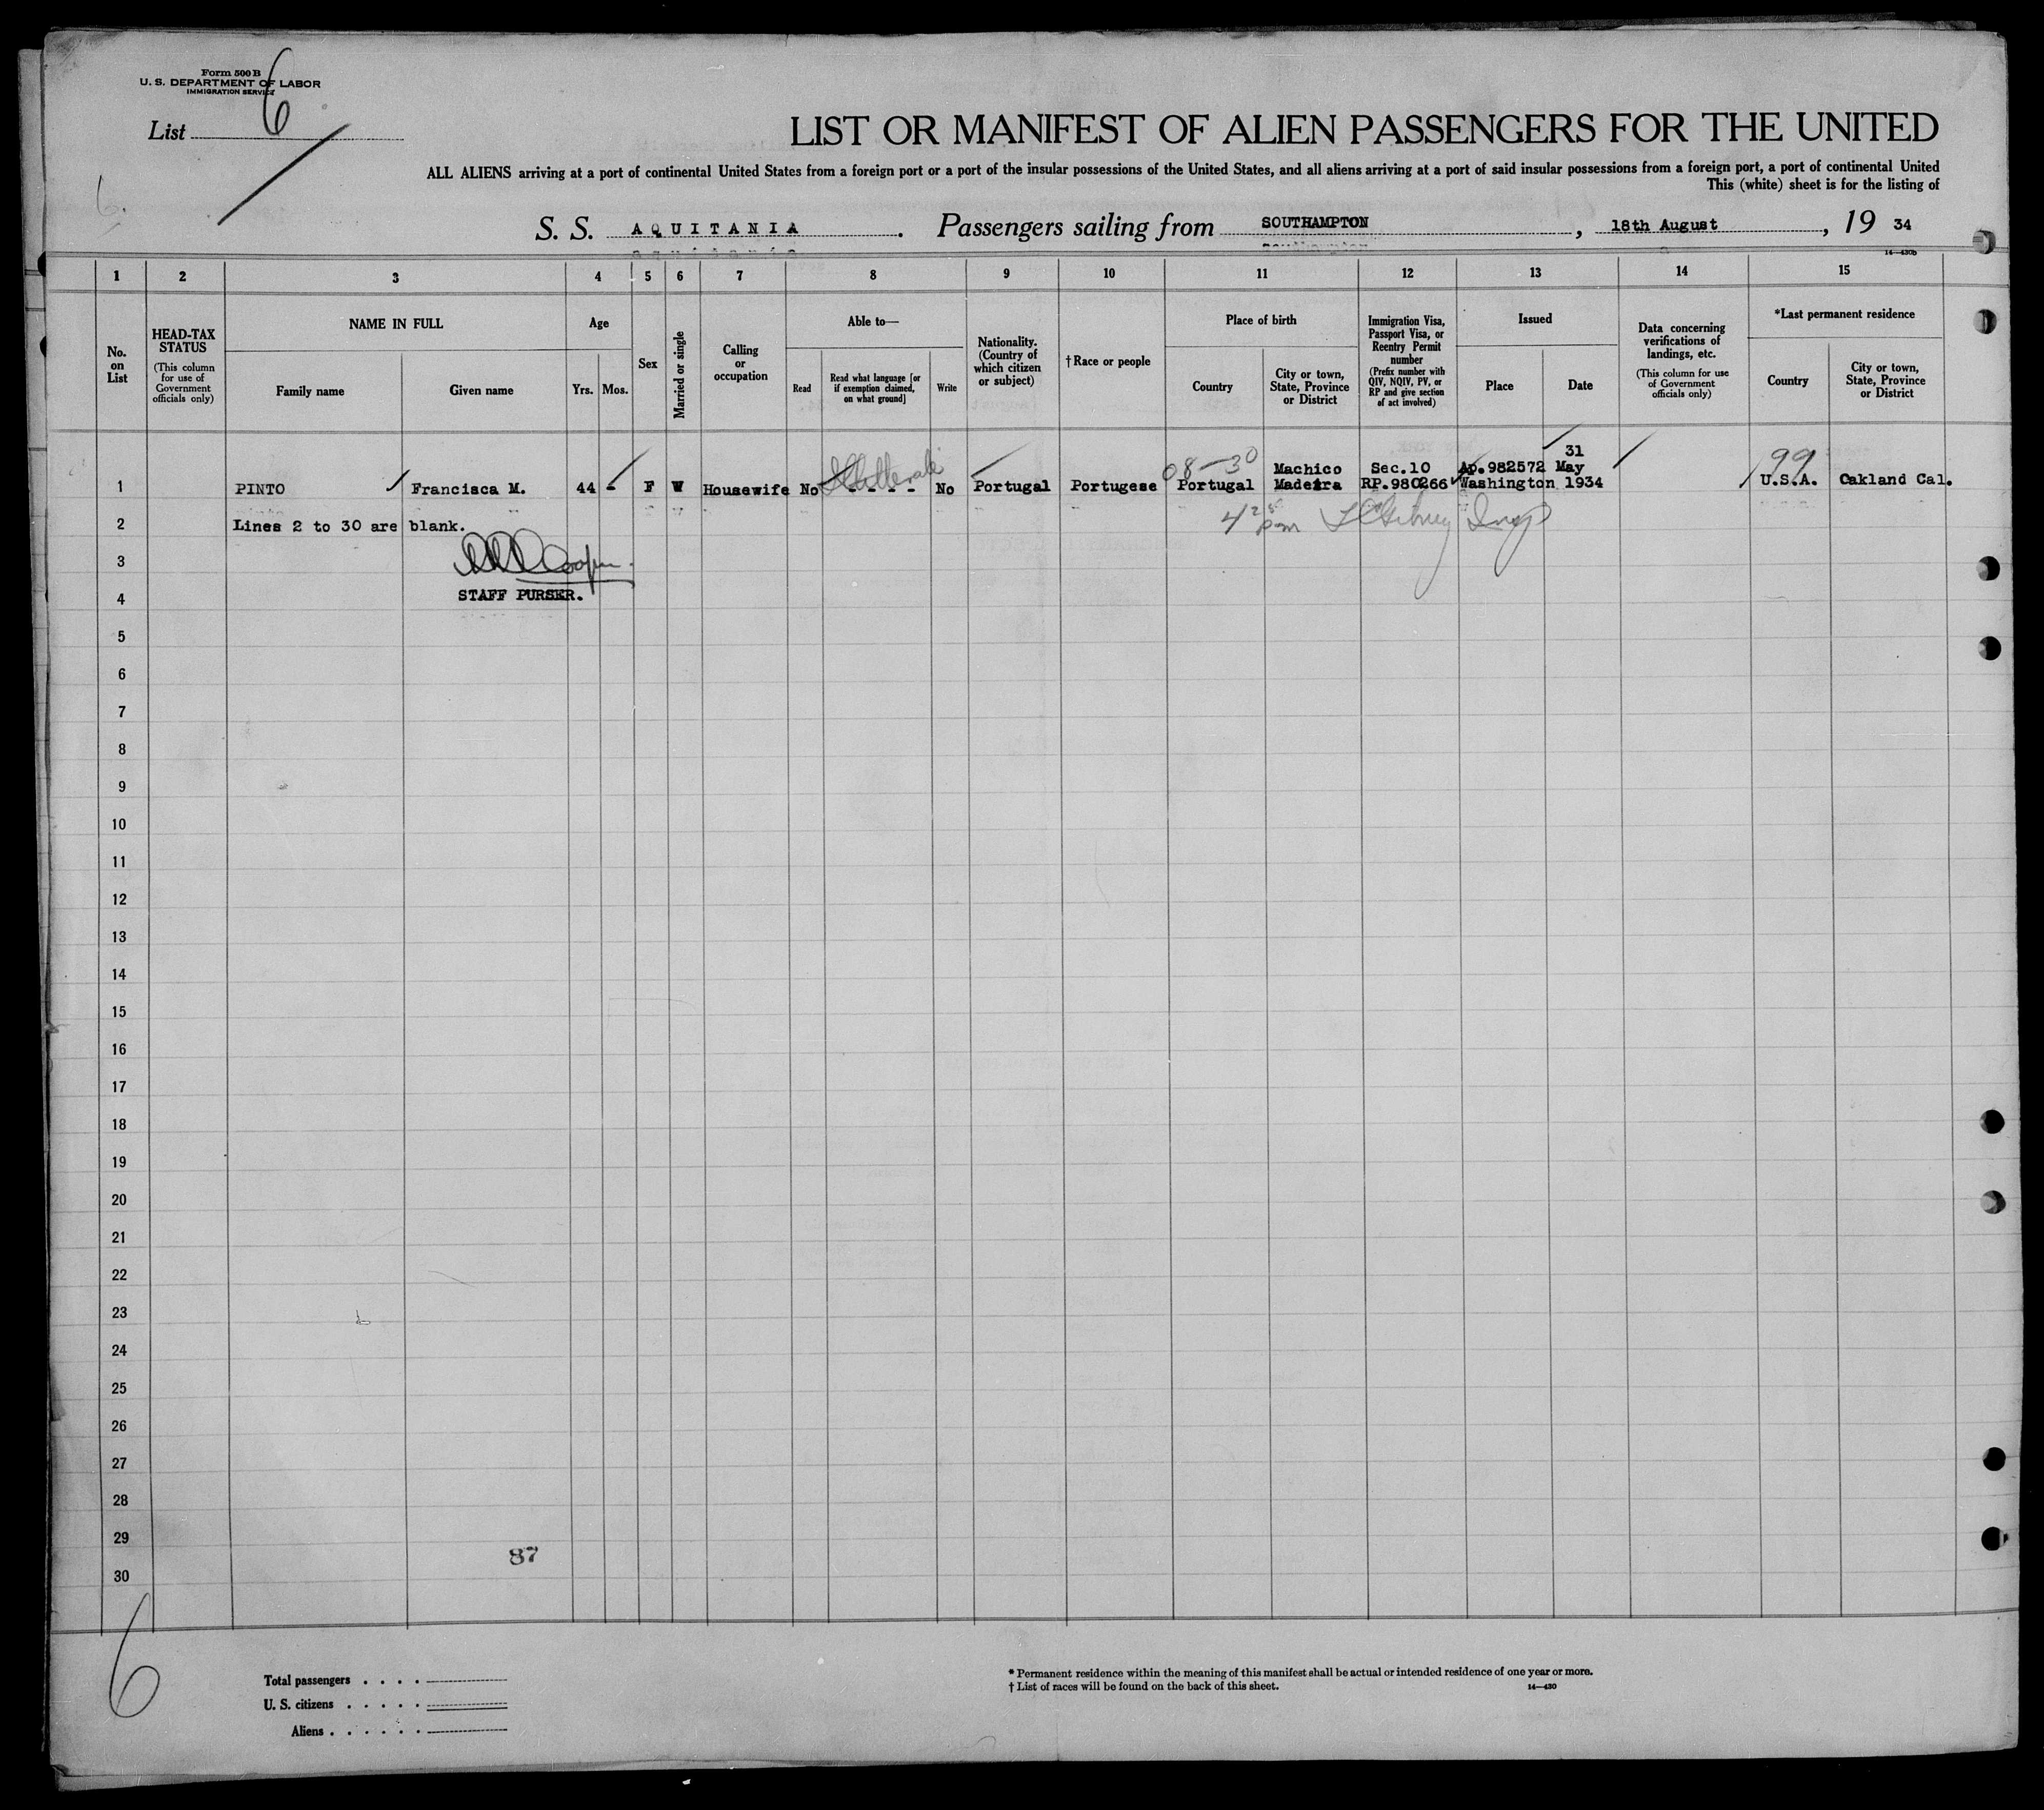 Form 500 B
U. S. DEPARTMENT OF LABOR
IMMIGRATION SERVICE
List 6
6.
LIST OR MANIFEST OF ALIEN PASSENGERS FOR THE UNITED
ALL ALIENS arriving at a port of continental United States from a foreign port or a port of the insular possessions of the United States, and all aliens arriving at a port of said insular possessions from a foreign port, a port of continental United
This (white) sheet is for the listing of
S. S. AQUITANIA. Passengers sailing from SOUTHAMPTON, 18th August, 19 34
14—430b
1 2 3 4 5 6 7 8 9 10 11 12 13 14 15
No. on List
HEAD-TAX STATUS
(This column for use of Government officials only)
NAME IN FULL
Family name
Given name
Age
Yrs. Mos.
Sex
Married or single
Calling or occupation
Able to—
Read
Read what language [or if exemption claimed, on what ground]
Write
Nationality. (Country of which citizen or subject)
†Race or people
Place of birth
Country
City or town, State, Province or District
Immigration Visa, Passport Visa, or Reentry Permit number
(Prefix number with QIV, NQIV, PV, or RP and give section of act involved)
Issued
Place
Date
Data concerning verifications of landings, etc.
(This column for use of Government officials only)
*Last permanent residence
Country
City or town, State, Province or District
1 PINTO Francisca M. 44 - F W Housewife No Illiterate - - - - No Portugal Portugese 08-30 Portugal Machico Madeira Sec.10 RP.980266 Ap.982572 Washington 31 May 1934 99 U.S.A. Oakland Cal.
2 Lines 2 to 30 are blank.
pm Insp
3 Cooper.
4 STAFF PURSER.
5
6
7
8
9
10
11
12
13
14
15
16
17
18
19
20
21
22
23
24
25
26
27
28
29
87
30
6
Total passengers . . . .
U. S. citizens . . . . .
Aliens . . . . . .
* Permanent residence within the meaning of this manifest shall be actual or intended residence of one year or more.
† List of races will be found on the back of this sheet.
14—430